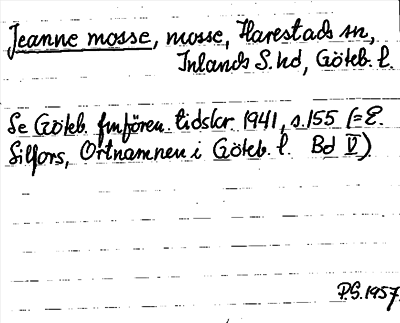 Jeanne mosse, mosse, Harestads sn,
Inlands S. hd, Göteb. l.
Se Göteb. fmfören. tidskr. 1941, s. 155 (= E.
Silfors, Ortnamnen i Göteb. l. Bd V)
P.G. 1957.